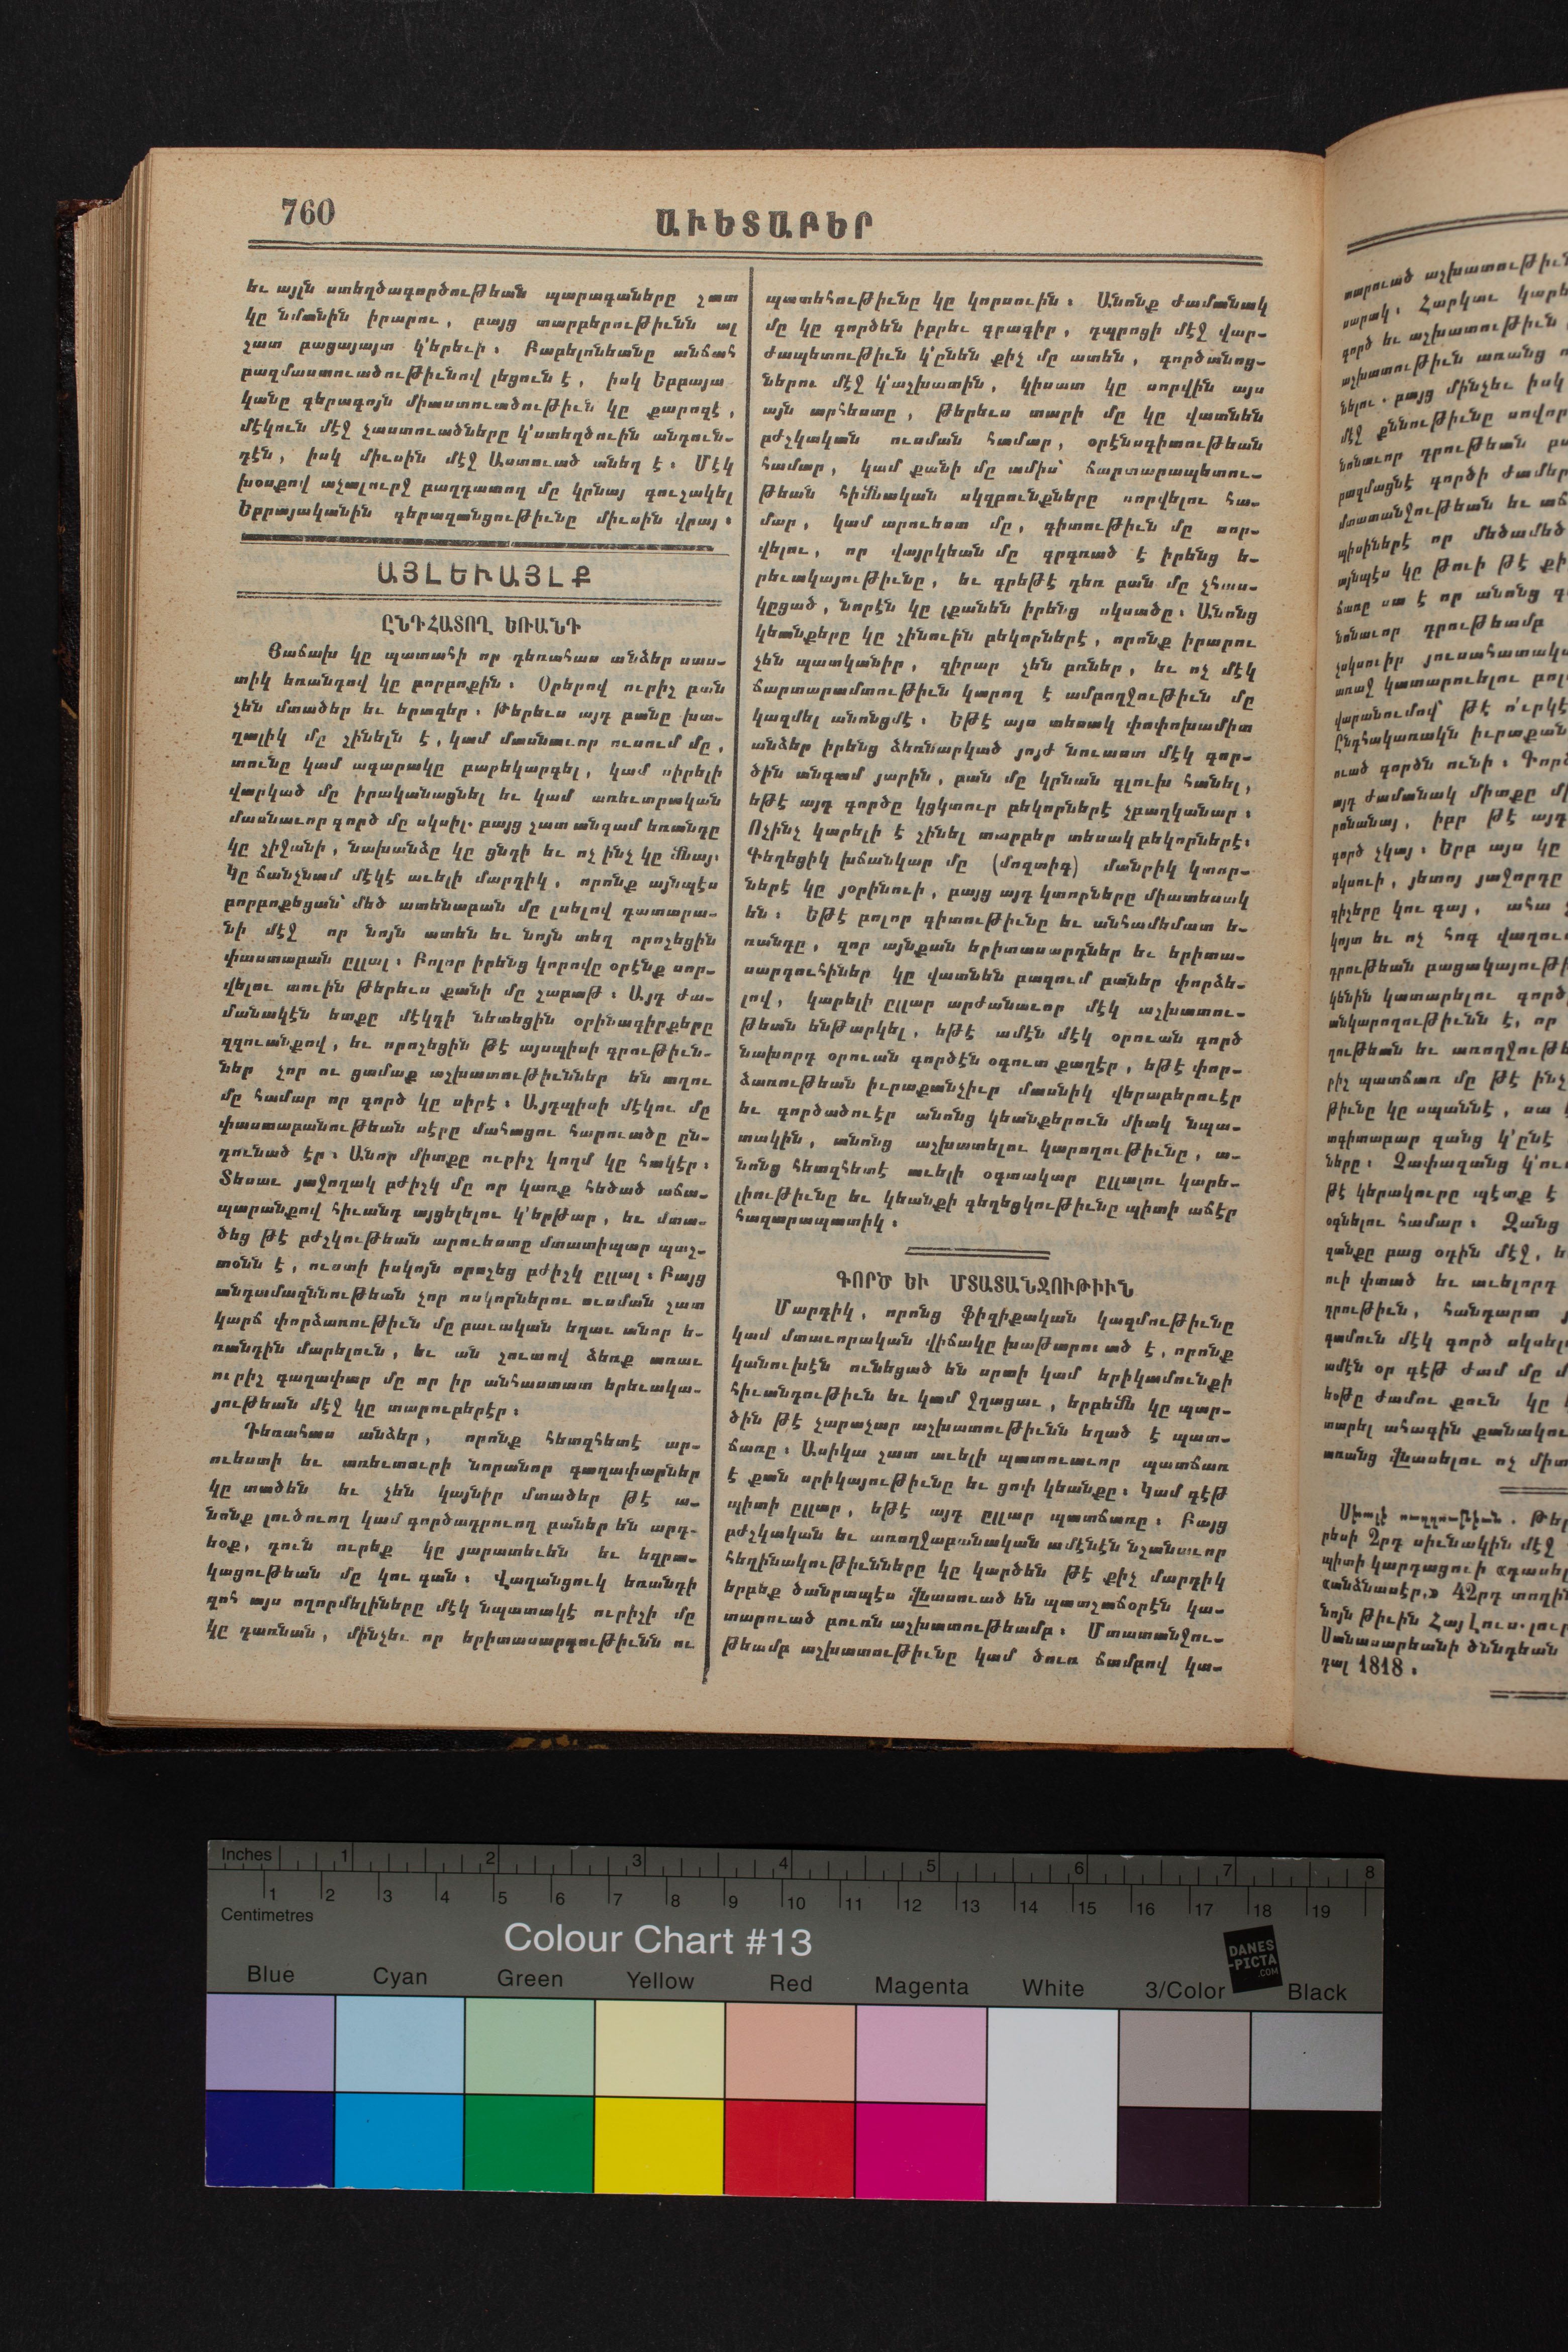 760
ԱՒԵՏԱԲԵՐ
եւ այլն ստեղծագործութեան պարագաները շատ
կը նմանին իրարու, բայց տարբերութիւնն ալ
շատ բացայայտ կ՚երեւի։ Բաբելոնեանը անճահ
բազմաստուածութիւնով լեցուն է, իսկ Եբրայա
կանը գերագոյն միաստուածութիւն կը քարոզէ,
մէկուն մէջ չաստուածները կ՚ստեղծուին անդուն-
դէն, իսկ միւսին մէջ Աստուած անեղ է։ Մէկ
խօսքով աչալուրջ բաղդատող մը կրնայ գուշակել
Եբրայականին գերազանցութիւնը միւսին վրայ։
ԱՅԼԵՒԱՅԼՔ
ԸՆԴՀԱՏՈՂ ԵՌԱՆԴ
Յաճախ կը պատահի որ դեռահաս անձեր սաս-
տիկ եռանդով կը բորբոքին։ Օրերով ուրիշ բան
չեն մտածեր եւ երազեր. Թերեւս այդ բանը խա-
ղալիկ մը շինելն է, կամ մասնաւոր ուսում մը,
տունը կամ ագարակը բարեկարգել, կամ սիրելի
վարկած մը իրականացնել եւ կամ առեւտրական
մասնաւոր գործ մը սկսիլ. բայց շատ անգամ եռանդը
կը շիջանի, նախանձը կը ցնդի եւ ոչ ինչ կը մնայ.
Կը ճանչնամ մէկէ աւելի մարդիկ, որոնք այնպէս
բորբոքեցան՝ մեծ ատենաբան մը լսելով դատարա-
նի մէջ որ նոյն ատեն եւ նոյն տեղ որոշեցին
փաստաբան ըլլալ։ Բոլոր իրենց կորովը օրէնք սոր-
վելու տուին թերեւս քանի մը շաբաթ։ Այդ ժա-
մանակէն ետքը մէկդի նետեցին օրինագիրքերը
զզուանքով, եւ որոշեցին թէ այսպիսի գրութիւն-
ներ չոր ու ցամաք աշխատութիւններ են տղու
մը համար որ գործ կը սիրէ։ Այդպիսի մէկու մը
փաստաբանութեան սէրը մահացու հարուածը ըն-
դունած էր. Անոր միտքը ուրիշ կողմ կը հակէր։
Տեսաւ յաջողակ բժիշկ մը որ կառք հեծած աճա-
պարանքով հիւանդ այցելելու կ՚երթար, եւ մտա-
ծեց թէ բժշկութեան արուեստը մտատիպար պաշ-
տօնն է, ուստի իսկոյն որոշեց բժիշկ ըլլալ։ Բայց
անդամազննութեան չոր ոսկորներու ուսման շատ
կարճ փորձառութիւն մը բաւական եղաւ անոր ե-
ռանդին մարելուն, եւ ան շուտով ձեռք առաւ
ուրիշ գաղափար մը որ իր անհաստատ երեւակա-
յութեան մէջ կը տարուբերէր։
Դեռահաս անձեր, որոնք հետզհետէ ար-
ուեստի եւ առեւտուրի նորանոր գաղափարներ
կը տածեն եւ չեն կայնիր մտածեր թէ ա-
նոնք լուծուող կամ գործադրուող բաներ են արդ-
եօք, դուն ուրեք կը յարատեւեն եւ եզրա-
կացութեան մը կու գան։ Վաղանցուկ եռանդի
զոհ այս ողորմելիները մէկ նպատակէ ուրիշի մը
կը դառնան, մինչեւ որ երիտասարդութիւնն ու
պատեհութիւնը կը կորսուին։ Անոնք ժամանակ
մը կը գործեն իբրեւ գրագիր, դպրոցի մէջ վար-
ժապետութիւն կ՚ընեն քիչ մը ատեն, գործանոց-
ներու մէջ կ՚աշխատին, կիսատ կը սորվին այս
այն արհեստը, թերեւս տարի մը կը վատնեն
բժշկական ուսման համար, օրէնսգիտութեան
համար, կամ քանի մը ամիս՝ ճարտարապետու-
թեան հիմնական սկզբունքները սորվելու հա-
մար, կամ արուեստ մը, գիտութիւն մը սոր-
վելու, որ վայրկեան մը գրգռած է իրենց ե-
րեւակայութիւնը, եւ գրեթէ դեռ բան մը չհաս-
կըցած, նորէն կը լքանեն իրենց սկսածը։ Անոնց
կեանքերը կը շինուին բեկորներէ, որոնք իրարու
չեն պատկանիր, զիրար չեն բռներ, եւ ոչ մէկ
ճարտարամտութիւն կարող է ամբողջութիւն մը
կազմել անոնցմէ։ Եթէ այս տեսակ փոփոխամիտ
անձեր իրենց ձեռնարկած յոյժ նուաստ մէկ գոր-
ծին անգամ յարին, բան մը կրնան գլուխ հանել,
եթէ այդ գործը կցկտուր բեկորներէ չբաղկանար։
Ոչինչ կարելի է շինել տարբեր տեսակ բեկորներէ։
Գեղեցիկ խճանկար մը (մոզտիգ) մանրիկ կտոր-
ներէ կը յօրինուի, բայց այդ կտորները միատեսակ
են։ Եթէ բոլոր գիտութիւնը եւ անհամեմատ ե-
ռանդը, զոր այնքան երիտասարդներ եւ երիտա-
սարդուհիներ կը վատնեն բազում բաներ փորձե-
լով, կարելի ըլլար արժանաւոր մէկ աշխատու-
թեան ենթարկել, եթէ ամէն մէկ օրուան գործ
նախորդ օրուան գործէն օգուտ քաղէր, եթէ փոր-
ձառութեան իւրաքանչիւր մասնիկ վերաբերուէր
եւ գործածուէր անոնց կեանքերուն միակ նպա-
տակին, անոնց աշխատելու կարողութիւնը, ա-
նոնց հետզհետէ աւելի օգտակար ըլլալու կարե-
լիութիւնը եւ կեանքի գեղեցկութիւնը պիտի աճէր
հազարապատիկ։
ԳՈՐԾ ԵՒ ՄՏԱՏԱՆՋՈՒԹԻՒՆ
Մարդիկ, որոնց ֆիզիքական կազմութիւնը
կամ մտաւորական վիճակը խաթարուած է, որոնք
կանուխէն ունեցած են սրտի կամ երիկամունքի
հիւանդութիւն եւ կամ ջղացաւ, երբեմն կը պար-
ծին թէ չարաչար աշխատութիւնն եղած է պատ-
ճառը։ Ասիկա շատ աւելի պատուաւոր պատճառ
է քան սրիկայութիւնը եւ ցոփ կեանքը։ Կամ գէթ
պիտի ըլլար, եթէ այդ ըլլար պատճառը։ Բայց
բժշկական եւ առողջաբանական ամէնէն նշանաւոր
հեղինակութիւնները կը կարծեն թէ քիչ մարդիկ
երբեք ծանրապէս վնասուած են պատշաճօրէն կա-
տարուած բուռն աշխատութեամբ։ Մտատանջու-
թեամբ աշխատութիւնը կամ ծուռ ճամբով կա-
տարուած աշխատութիւն
սարակ։ Հարկաւ կարե
գործ եւ աշխատութիւն
աշխատութիւն առանց
նելու. բայց մինչեւ իսկ
մէջ քննութիւնը սովոր
նոնաւոր դրութեան
բազմացնէ գործի ժամեր
մտատանջութեան եւ
պիսիներէ որ մեծամեծ
այնպէս կը թուի թէ քի
ճառը սա է որ անոնց
նոնաւոր դրութեամբ
չսկսուիր յուսահատակ
առաջ կատարուելու բոլ
վարանումով՝ թէ ո՛ւրկէ
Ընդհակառակն իւրաքան
ուած գործն ունի։ Գործ
այդ ժամանակ միտքը մի
րօնանայ, իբր թէ այդ
գործ չկայ։ Երբ այս կը
սկսուի, յետոյ յաջորդը
գիշերը կու գայ, ահա
կոյտ եւ ոչ հոգ վաղու
դրութեան բացակայութի
կենին կատարելու գործ
անկարողութիւնն է, որ
ղութեան եւ առողջութե
րիշ պատճառ մը թէ ինչ
թիւնը կը սպաննէ, սա
տգիտաբար զանց կ՚ընէ
ները։ Չափազանց կ՚ու
թէ կերակուրը պէտք է
օգնելու համար։ Զանց
զանքը բաց օդին մէջ,
ուի փտած եւ աւելորդ
դրութիւն, հանդարտ
զամուն մէկ գործ սկսել
ամէն օր գէթ ժամ մը
եօթը ժամու քուն կը
տարել ահագին քանակու
առանց վնասելու ոչ միտ
րեսի 2րդ սիւնակին մէջ
պիտի կարդացուի «դասեր
«անձնասէր,» 42րդ տողին
նոյն թիւին Հայ Լուս. լուր
Սանասարեանի ծննդեան
դալ 1818։
Inches 1 2 3 4 5 6 7 8
1 2 3 4 5 6 7 8 9 10 11 12 13 14 15 16 17 18 19
Centimetres
Colour Chart #13
DANES
-PICTA
.COM
Blue Cyan Green Yellow Red Magenta White 3/Color Black